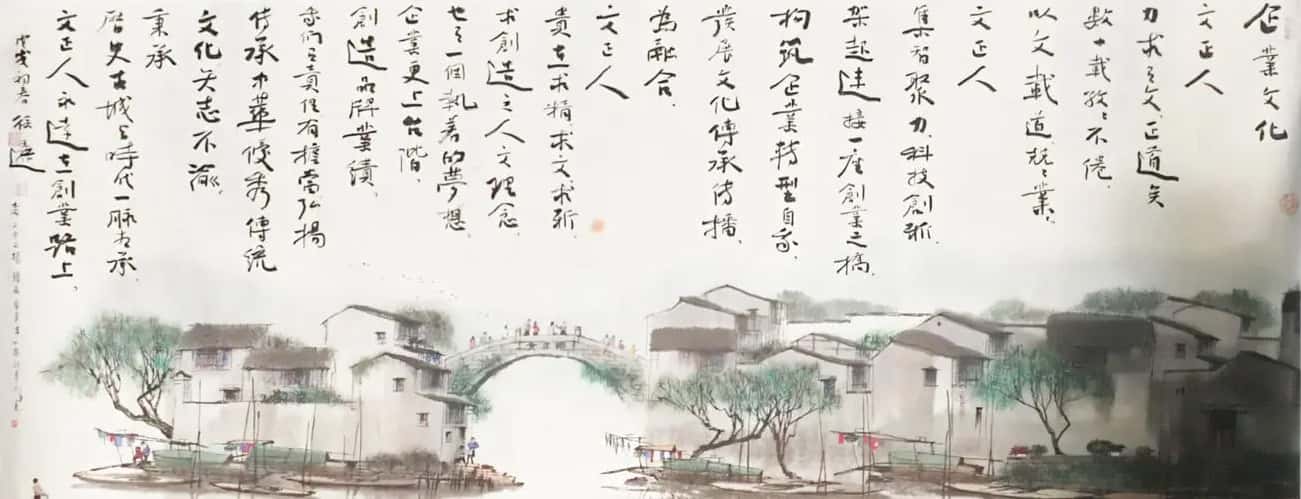 企業文化
文正人
力求之文、正道矣
数十載孜々不倦、
以文載道、兢々業、
文正人
集智聚力、科技創新、
架起連接一座創業之橋、
构筑企業转型自我
發展文化傳承传播、
為融合、
文正人
貴在求精、求文求新、
求創造之人文理念、
也是一個執着的夢想、
企業更上台階、
創造品牌業績、
我們之責任有擔當弘揚
传承中華優秀傳統
文化矢志不渝、
秉承
歷史古城與時代一脉相承、
文正人永遠在創業路上、
戊戌初春